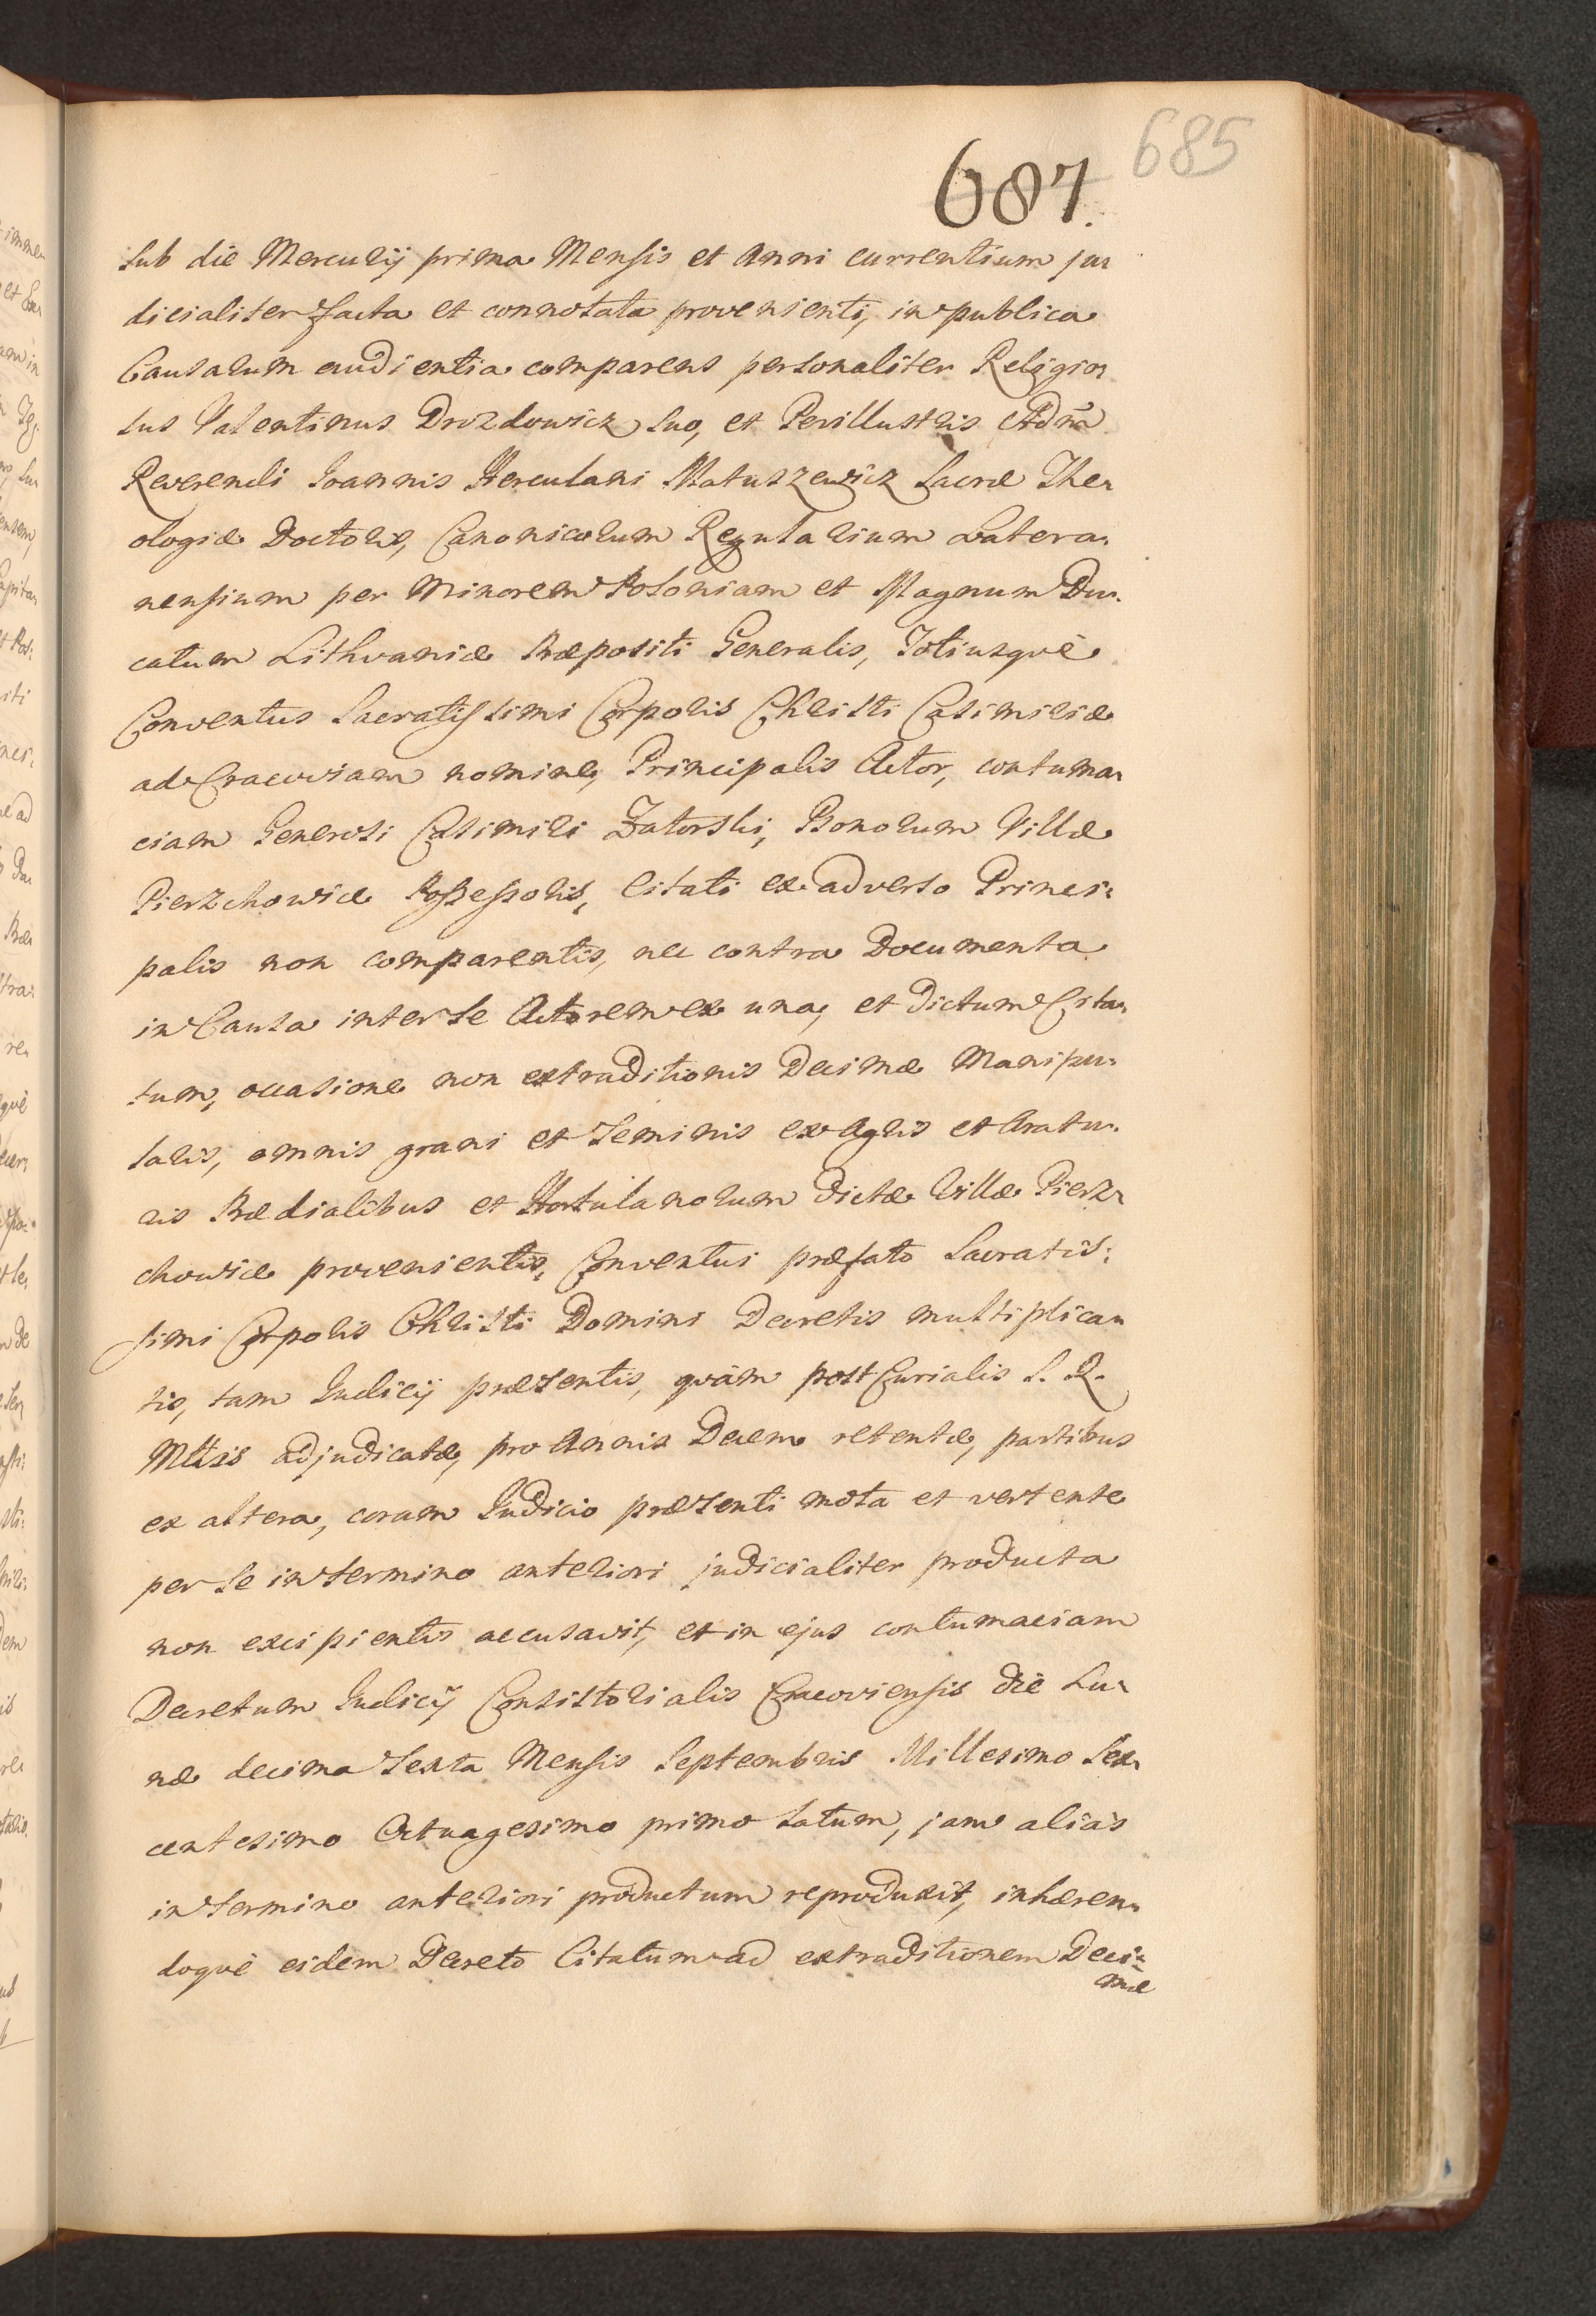 685
687.
sub die Mercurij prima Mensis et Anni currentium ju
dicialiter facta et connotata provenienti, in publica
Causarum audientia comparens personaliter Religio
sus Valentinus Drozdowicz suo, et Perillustris Adm̃
Reverendi Joannis Herculani Matuszewicz Sacræ The
ologiæ Doctoris, Canonicorum Regularium Latera
nensium per Minorem Poloniam et Magnum Du
catum Lithvaniæ Præpositi Generalis, Totiusquè
Conventus Sacratissimi Corporis Christi Casimiriæ
ad Cracoviam nomine, Principalis Actor, contuma
ciam Generosi Casimiri Zatorski, Bonorum Villæ
Pierzchowicæ Possessoris, Citati ex adverso Princi:
palis non comparentis, nec contra Documenta
in Causa inter se Actorem ex una, et dictum Cita
tum, occasione non extraditionis Decimæ Manipu
laris, omnis grani et Seminis ex Agris et Aratu
ris Prædialibus et Hortulanorum dictæ Villæ Pierz
chowicæ provenientis, Conventui præfato Sacratis:
simi Corporis Christi Domini Decretis multiplica
tis, tam Judicij præsentis, quàm post Curialis S. R.
Mttis adjudicatæ, pro Annis Decem retentæ, partibus
ex altera, coram Judicio præsenti mota et vertente
per se in termino anteriori judicialiter producta
non excipientis accusavit, et in ejus contumaciam
Decretum Judicij Consistorialis Cracoviensis die Lu
næ decima Sexta Mensis Septembris Millesimo Sex
centesimo Octuagesimo primo latum, jam aliàs
in termino anteriori productum reproduxit, inhæren
doquè eidem Decreto Citatum ad extraditionem Deci=
mæ